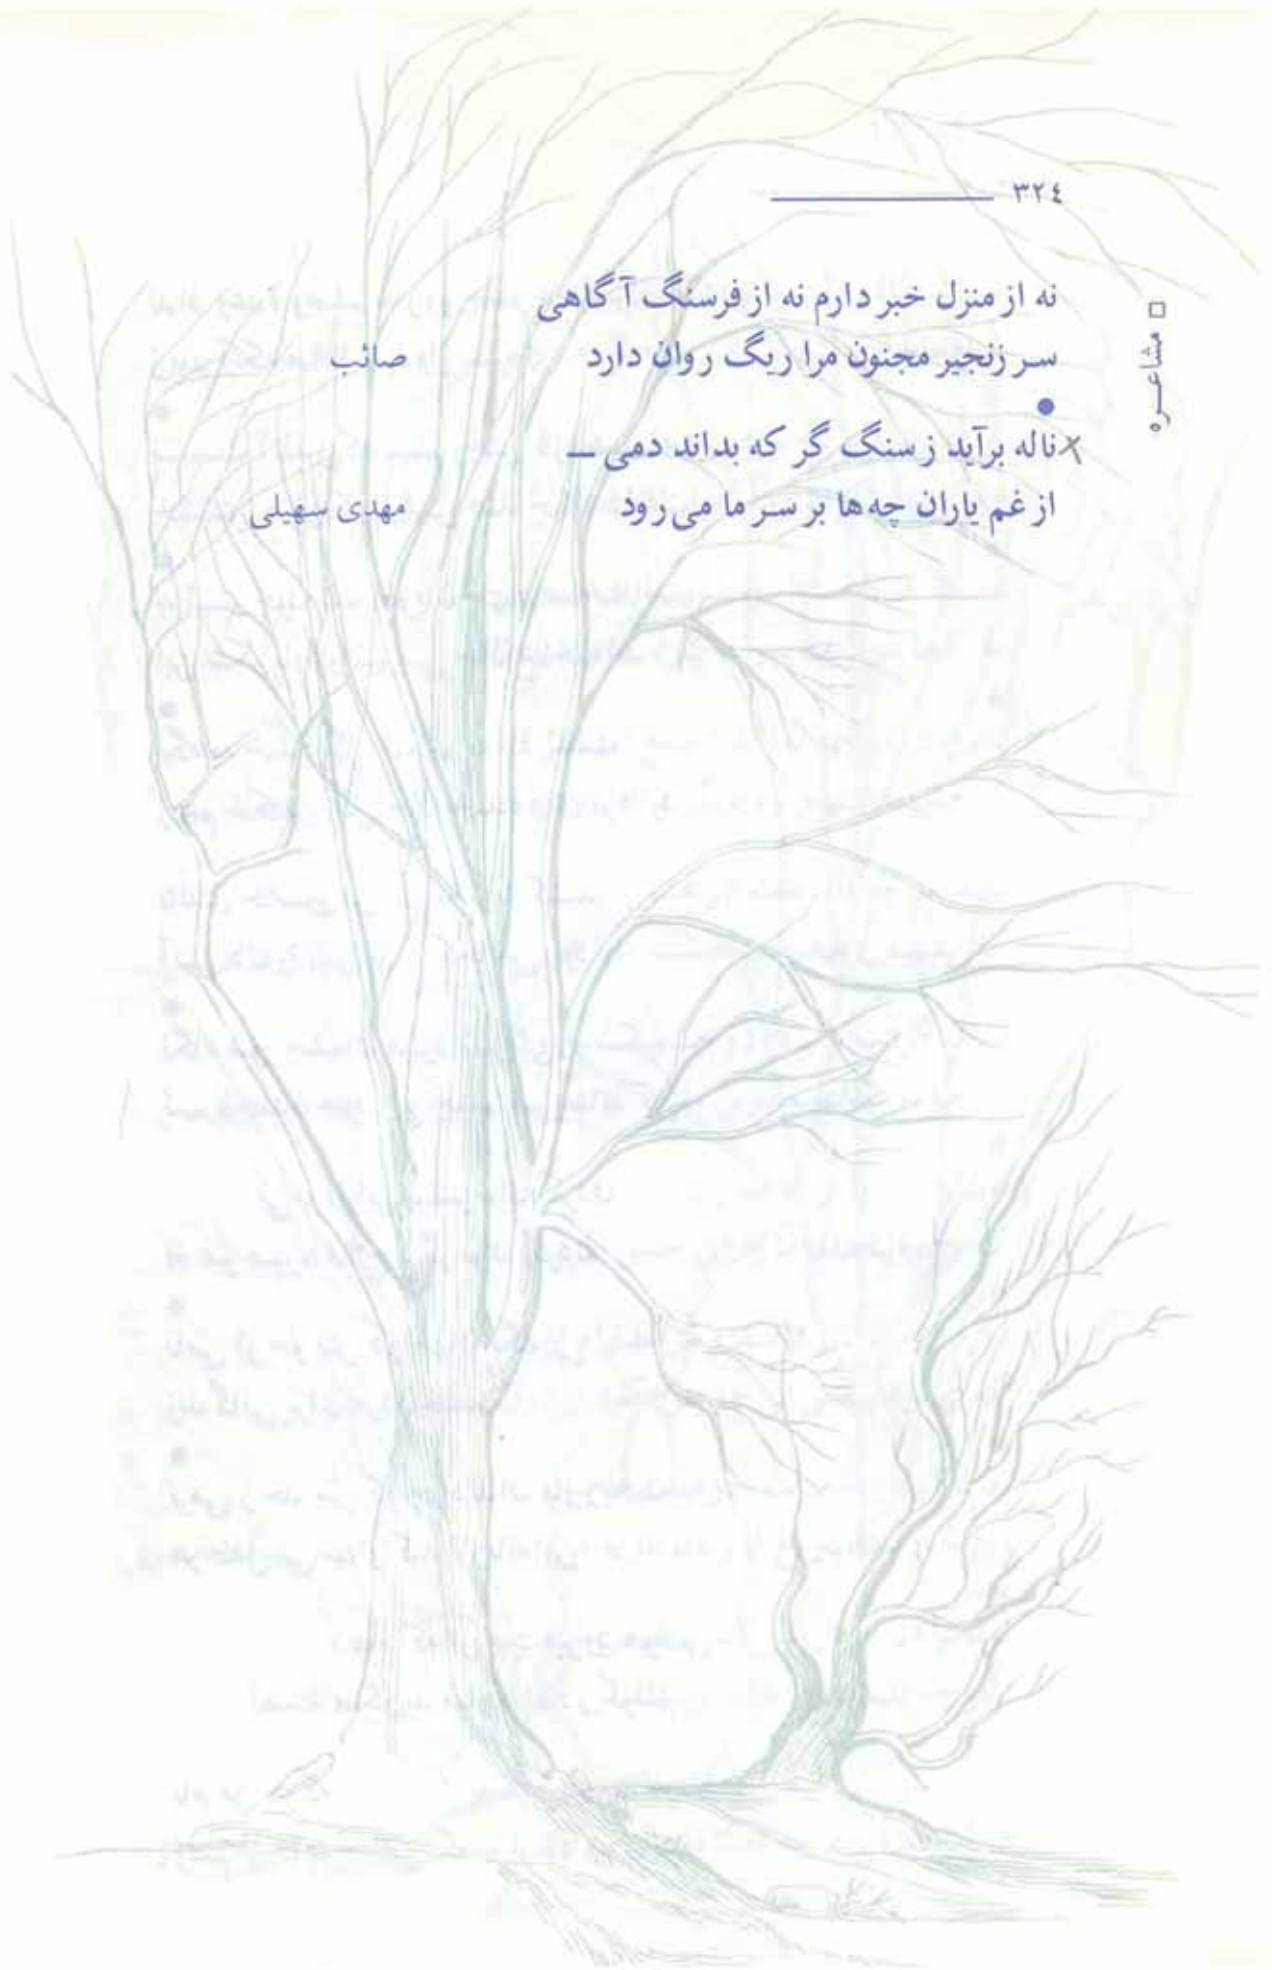 ۳۲٤
□ مشاعـــره
نه از منزل خبر دارم نه از فرسنگ آگاهی
سر زنجیر مجنون مرا ریگ روان دارد صائب
●
ناله برآید ز سنگ گر که بداند دمی —
از غم یاران چه‌ها بر سر ما می‌رود مهدی سهیلی